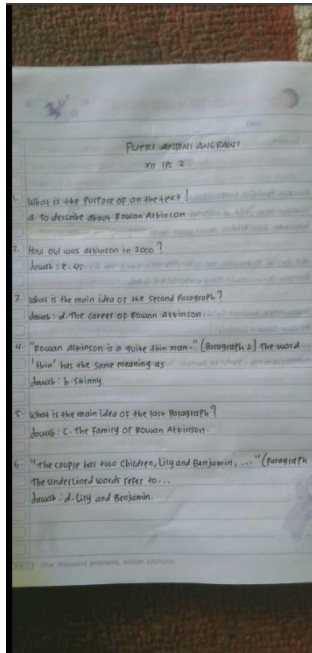 PUTRI ANDINI ANGRAINI
XII IPS 2
1. What is the purpose of on the text !
a. To describe about Rowan Atkinson
2. How old was Atkinson in 2000 ?
Jawab : e. 45
3. what is the main idea of the second paragraph ?
Jawab : d. The career of Rowan Atkinson.
4. "Rowan Atkinson is a quite thin man." (Paragraph 2) The word
'thin' has the same meaning as
Jawab : b. Skinny
5. what is the main idea of the last paragraph ?
Jawab : C. The Family of Rowan Atkinson.
6. "The couple has two children, Lily and Benjamin, ..." (Paragraph
The underlined words refer to ...
Jawab : d. Lily and Benjamin.
One thousand problems, million solutions